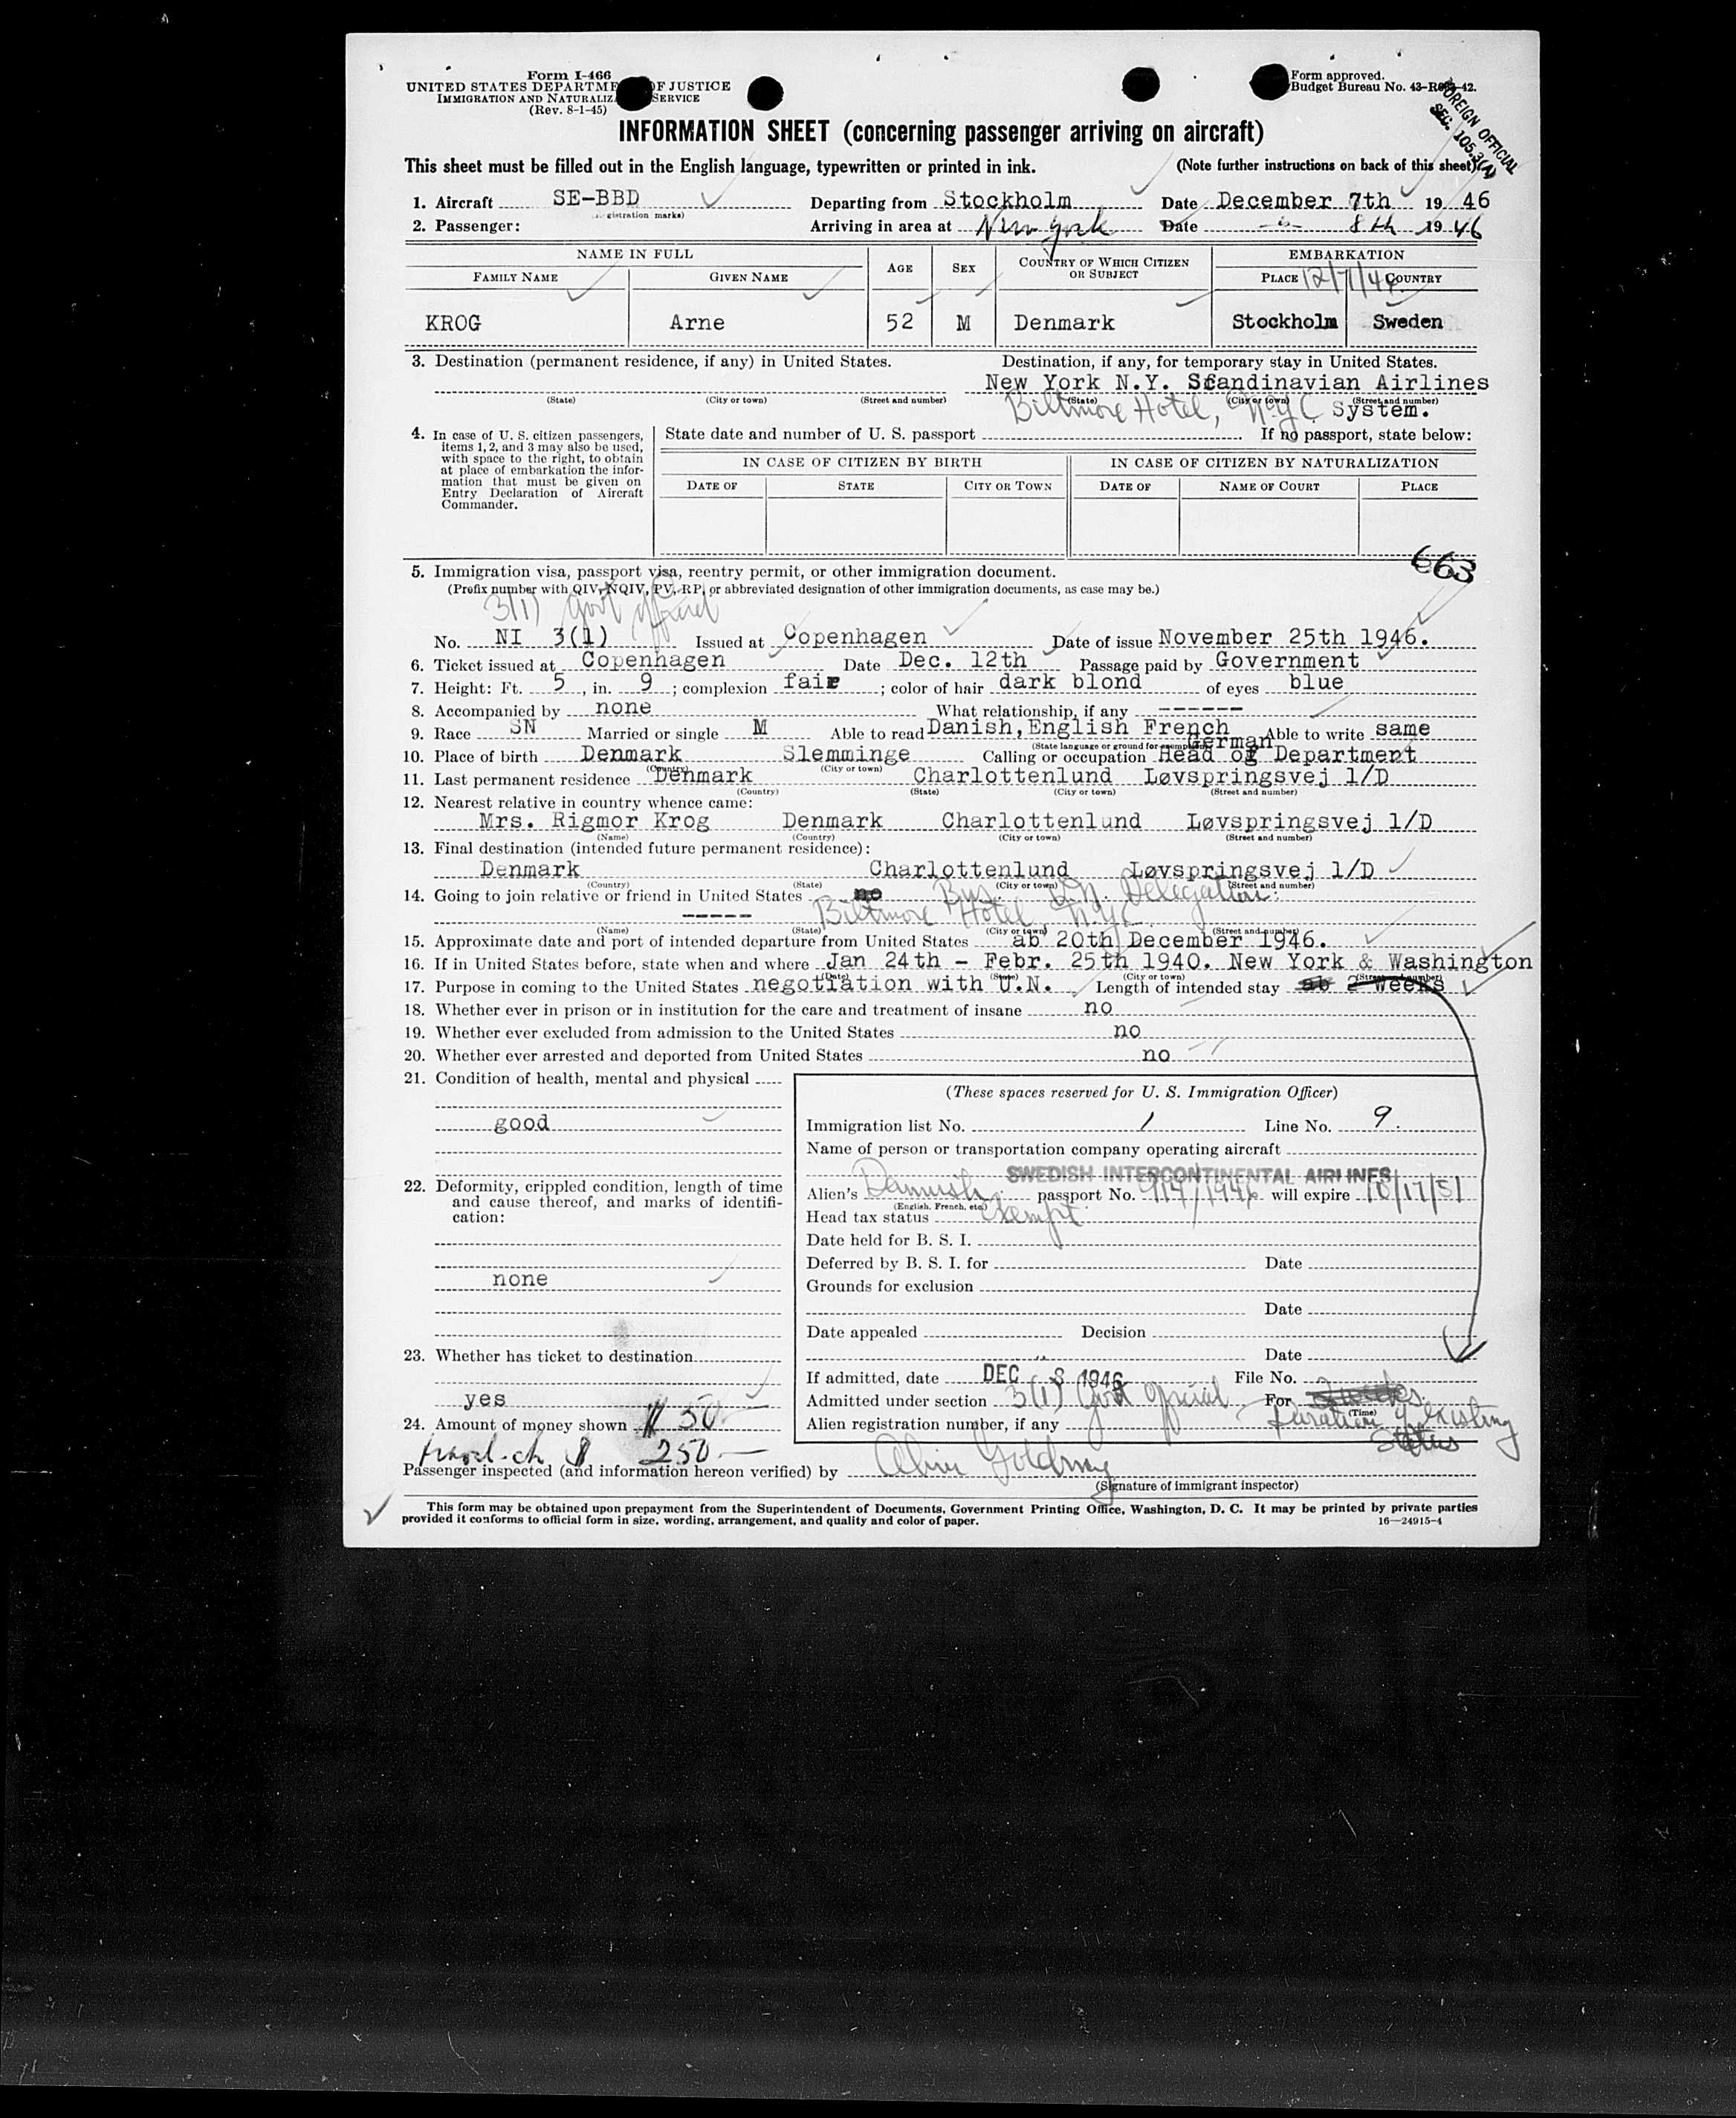 Form I-466
UNITED STATES DEPARTME OF JUSTICE
IMMIGRATION AND NATURALIZ SERVICE
(Rev. 8-1-45)
Form approved.
Budget Bureau No. 43-R -42.
FOREIGN OFFICIAL
SEC. 105.3(A)
INFORMATION SHEET (concerning passenger arriving on aircraft)
This sheet must be filled out in the English language, typewritten or printed in ink. (Note further instructions on back of this sheet)
1. Aircraft SE-BBD Departing from Stockholm Date December 7th 1946
gistration marks)
2. Passenger: Arriving in area at New York Date 8th 1946
NAME IN FULL
FAMILY NAME GIVEN NAME AGE SEX COUNTRY OF WHICH CITIZEN OR SUBJECT EMBARKATION
PLACE 12/7/46 COUNTRY
KROG Arne 52 M Denmark Stockholm Sweden
3. Destination (permanent residence, if any) in United States. Destination, if any, for temporary stay in United States.
New York N.Y. Scandinavian Airlines
(State) (City or town) (Street and number) (State) (City or town) (Street and number)
Biltmore Hotel, N.Y.C. System.
4. In case of U. S. citizen passengers, items 1, 2, and 3 may also be used, with space to the right, to obtain at place of embarkation the information that must be given on Entry Declaration of Aircraft Commander.
State date and number of U. S. passport If no passport, state below:
IN CASE OF CITIZEN BY BIRTH IN CASE OF CITIZEN BY NATURALIZATION
DATE OF STATE CITY OR TOWN DATE OF NAME OF COURT PLACE
663
5. Immigration visa, passport visa, reentry permit, or other immigration document.
(Prefix number with QIV, NQIV, PV, RP, or abbreviated designation of other immigration documents, as case may be.)
3(1) Govt official
No. NI 3(1) Issued at Copenhagen Date of issue November 25th 1946.
6. Ticket issued at Copenhagen Date Dec. 12th Passage paid by Government
7. Height: Ft. 5, in. 9; complexion fair; color of hair dark blond of eyes blue
8. Accompanied by none What relationship, if any ------
9. Race SN Married or single M Able to read Danish, English French Able to write same
(State language or ground for exemption) German
10. Place of birth Denmark Slemminge Calling or occupation Head of Department
(Country) (City or town)
11. Last permanent residence Denmark Charlottenlund Løvspringsvej 1/D
(Country) (State) (City or town) (Street and number)
12. Nearest relative in country whence came:
Mrs. Rigmor Krog Denmark Charlottenlund Løvspringsvej 1/D
(Name) (Country) (City or town) (Street and number)
13. Final destination (intended future permanent residence):
Denmark Charlottenlund Løvspringsvej 1/D
(Country) (State) (City or town) (Street and number)
14. Going to join relative or friend in United States no Bus. U.N. Delegation.
----- Biltmore Hotel N.Y.C.
(Name) (State) (City or town) (Street and number)
15. Approximate date and port of intended departure from United States ab 20th December 1946.
16. If in United States before, state when and where Jan 24th - Febr. 25th 1940. New York & Washington
(Date) (State) (City or town) (Street and number)
17. Purpose in coming to the United States negotiation with U.N. Length of intended stay ab 2 weeks
18. Whether ever in prison or in institution for the care and treatment of insane no
19. Whether ever excluded from admission to the United States no
20. Whether ever arrested and deported from United States no
21. Condition of health, mental and physical
good
22. Deformity, crippled condition, length of time and cause thereof, and marks of identification:
none
23. Whether has ticket to destination
yes
24. Amount of money shown $ 50 —
travel. ch $ 250 —
(These spaces reserved for U. S. Immigration Officer)
Immigration list No. 1 Line No. 9.
Name of person or transportation company operating aircraft
SWEDISH INTERCONTINENTAL AIRLINES
Alien's Danish passport No. 1946 will expire 10/17/51
(English, French, etc.)
Head tax status Exempt
Date held for B. S. I.
Deferred by B. S. I. for Date
Grounds for exclusion
Date
Date appealed Decision
Date
If admitted, date DEC 8 1946 File No.
Admitted under section 3(1) Govt official For 2 weeks
(Time)
Alien registration number, if any Duration of existing
Status
Passenger inspected (and information hereon verified) by
(Signature of immigrant inspector)
This form may be obtained upon prepayment from the Superintendent of Documents, Government Printing Office, Washington, D. C. It may be printed by private parties
provided it conforms to official form in size, wording, arrangement, and quality and color of paper.
16—24915-4